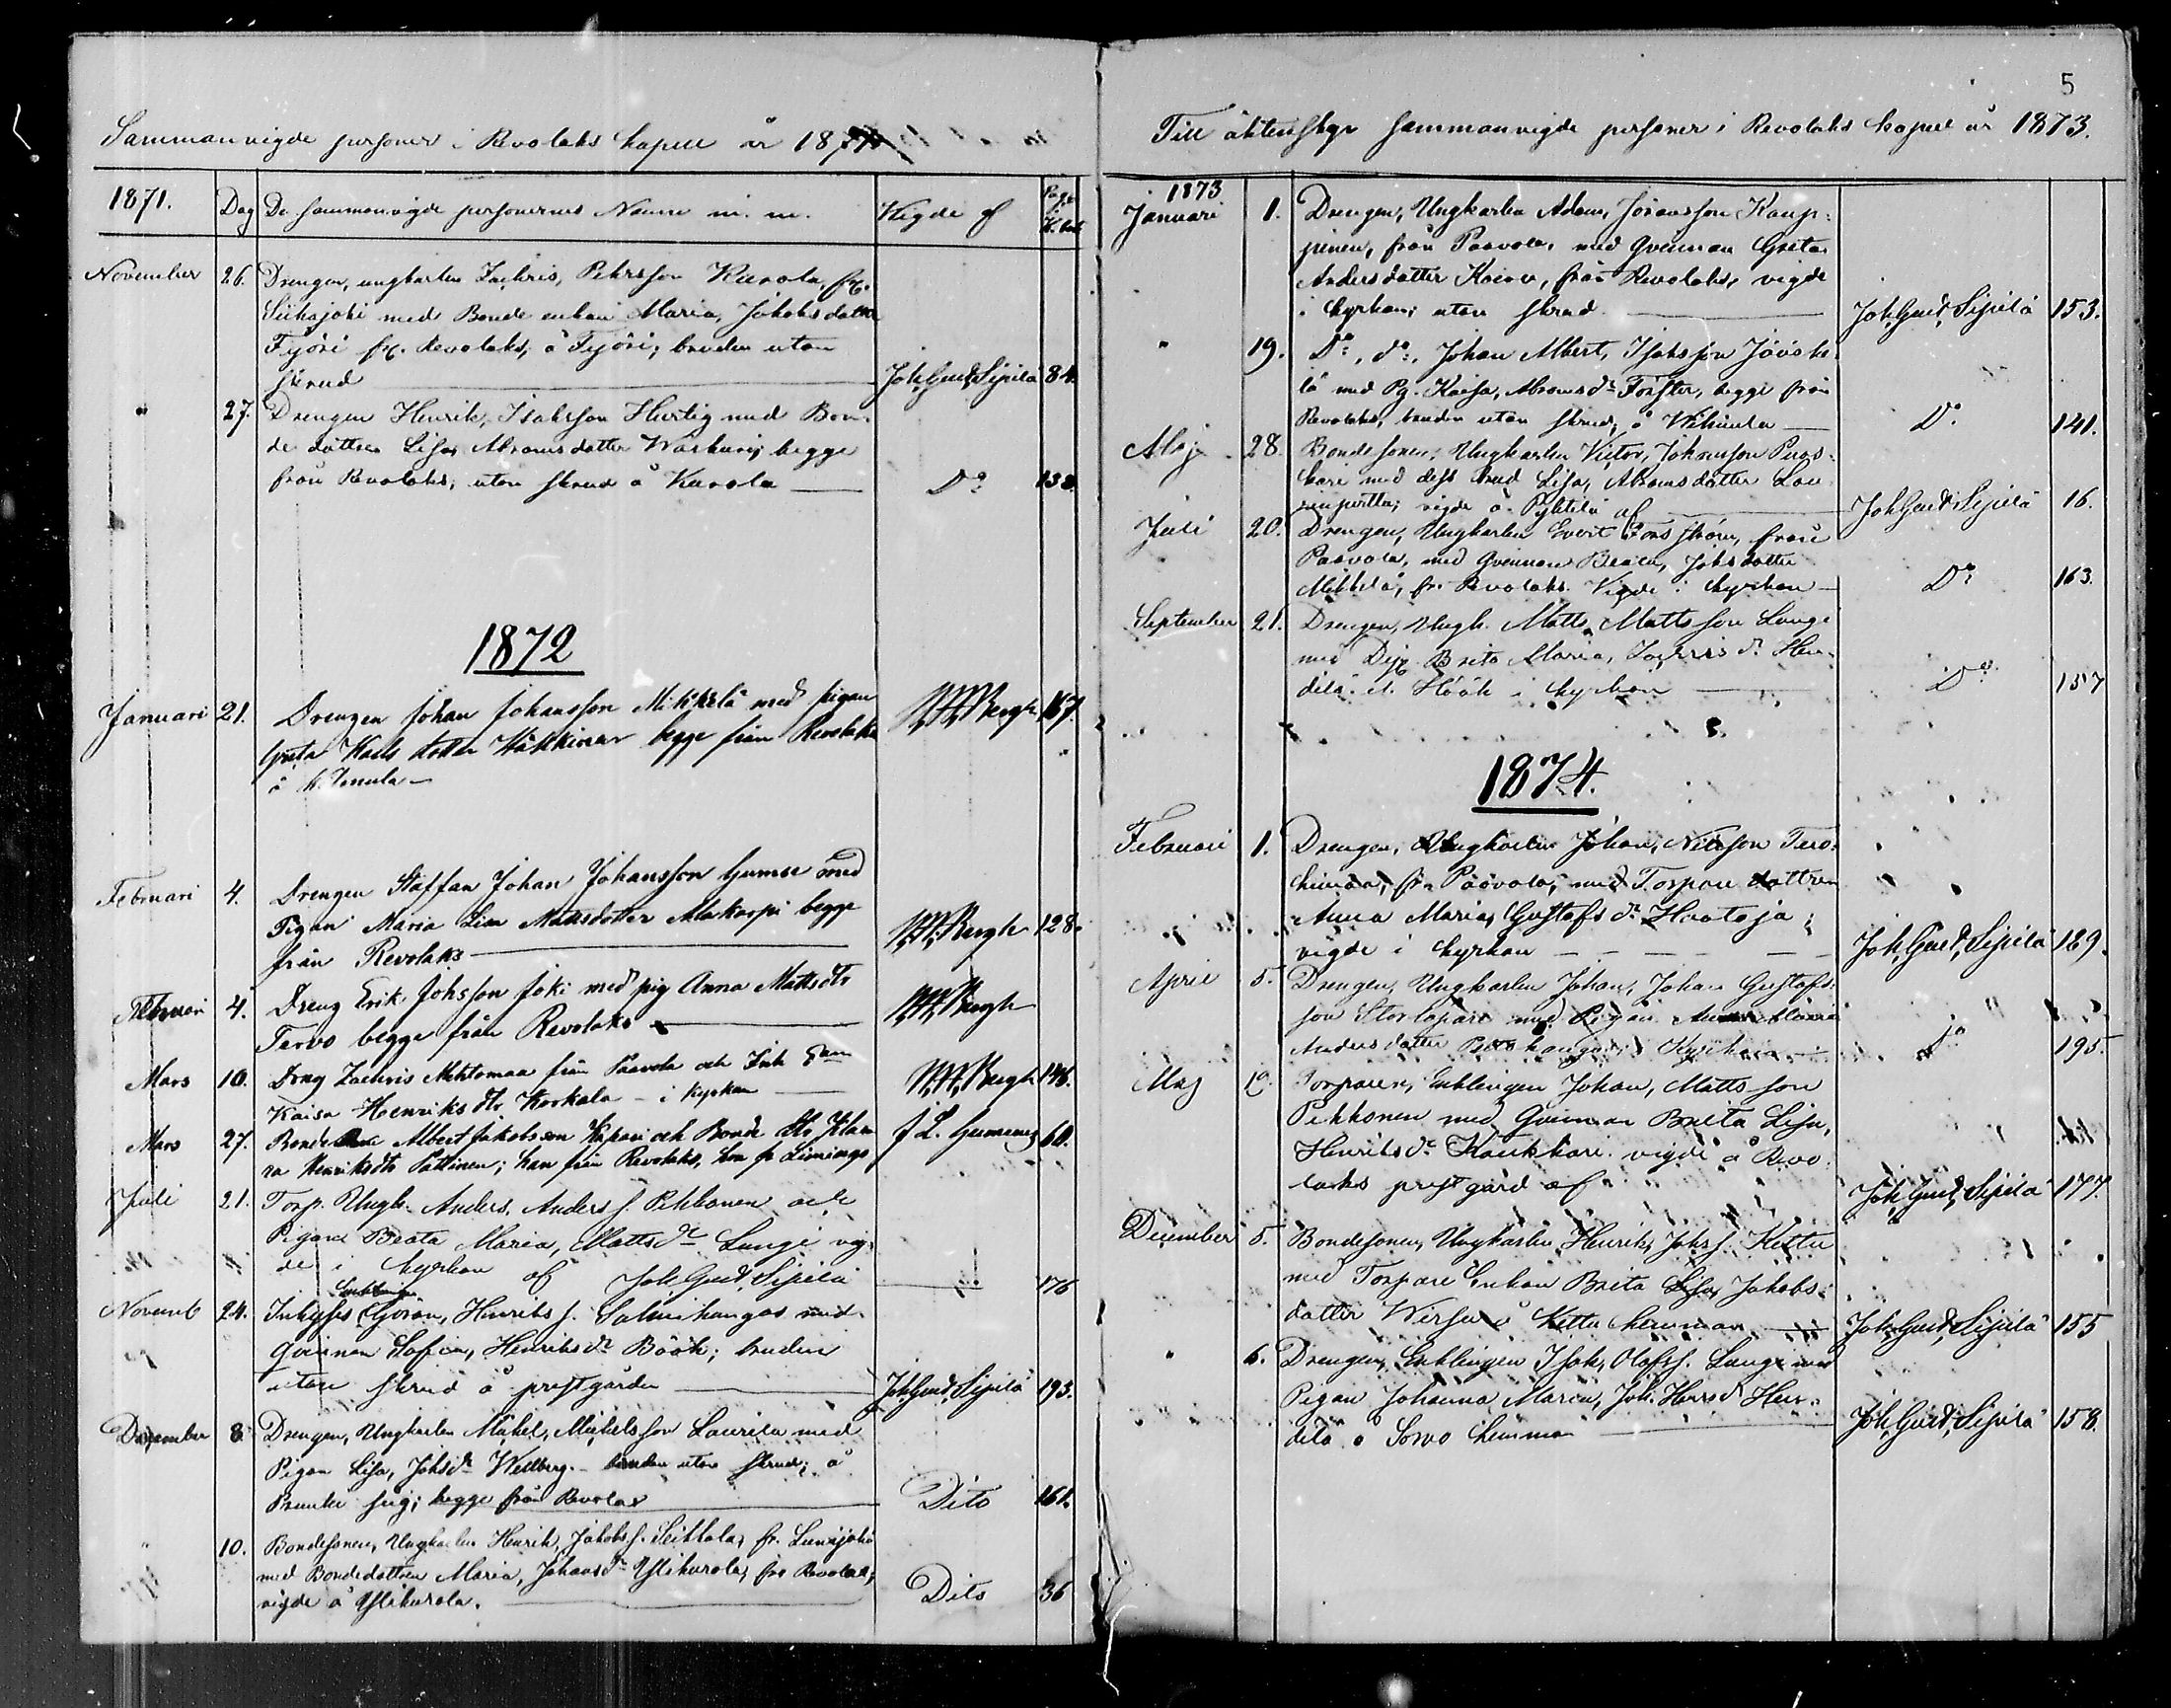 Sammanvigde personer i Revolaks kapell år 1871
1871. Dag De sammanvigde personernes Namn m. m. Vigde af Pag. i K. bok
November 26. Drengen, ungkarlen Zachris, Pehrsson Karola, fr.
Siikajoki med Bonde enkan Maria, Jakobsdotter
Työri fr. Revolaks, å Työri; bruden utan
skrud Joh. Gust. Sipilä 84.
" 27. Drengen Henrik, Isaksson Hurtig med Bon-
de dottren Lisa, Abramsdotter Warkuri; begge
från Revolaks; utan skrud å Karola Do 138.
1872
Januari 21. Drengen Johan Johansson Mikkelä med pigan
Greta Karls dotter Häkkinen begge från Revolaks 167
Februari 4. Drengen Staffan Johan Johansson Gumse med
Pigan Maria Lisa Mattsdotter Alakorpi begge
från Revolaks Bergh 128.
Februari 4. Dreng Erik Johsson Joki med pig Anna Mattsdtr
Tervo begge från Revolaks Bergh
Mars 10. Dreng Zachris Mehtomaa från Paavola och
Kaisa Henriksdtr Korkala - i kyrkan Bergh 146.
Mars 27. Bonde Albert Jakobsson och Bonde dtr
Henriksdtr Pattinen; han från Revolaks, hon fr Limingo 60.
Juli 21. Torp. Ungk. Anders, Anders s. Pekkonen och
Pigan Beata Maria, Mattsdr Lunge vig-
de i kyrkan af Joh. Gust. Sipilä 176
Novemb 24. Inhyses Enklingen Göran, Henriks s. Salmikangas med
Qvinnan Sofia, Henriksdr Böök; bruden
utan skrud å prestgården Joh. Gust. Sipilä 193.
December 8 Drengen, Ungkarlen Mikel, Mickelsson Laurila med
Pigan Lisa, Johsdr Wellberg. bruden utan skrud; å
begge från Revolax Dito 161.
10. Bondesonen, Ungkarlen Henrik, Jakobs s. Seikkala, fr. Lumijoki
med Bondedottren Maria, Johansdr Ylikurola, fr Revolax;
vigde å Ylikurola. Dito 36
5
Till äktenskap sammanvigde personer i Revolaks kapell år 1873.
1873
Januari 1. Drengen, Ungkarlen Adam, Jöransson Kaup-
pinen, från Paavola, med qvinnan Greta
Andersdotter, från Revolaks, vigde
i kyrkan; utan skrud Joh. Gust. Sipilä 153.
" 19. Do, do, Johan Albert, Isaksson Jääsk-
lä med Pg. Kaisa, Abramsdr, begge från
Revolaks, bruden utan skrud, å Do 141.
Maj 28. Bondesonen, Ungkarlen Victor, Johansson Puos-
kari med dess brud Lisa, Abramsdotter Lou-
vigde å af Joh. Gust. Sipilä 16.
Juli 20. Drengen, Ungkarlen Evert Forsström, från
Paavola, med qvinnan Beata, Johsdotter
Mikkelä, fr. Revolaks. Vigde i kyrkan Do 163.
September 21. Drengen, Ungk. Matts, Mattsson Lunge
med Brita Maria, Zachrisdr Hen-
dilä i kyrkan Do 157
1874.
Februari 1. Drengen, Ungkarlen Johan, Nilsson Turo-
fr. Paavola, med Torpare dottren
Anna Maria, Gustafsdr Haataja;
vigde i kyrkan Joh. Gust. Sipilä 189.
April 5. Drengen, Ungkarlen Johan, Johan Gustafs-
son med Pigan Anna Maria
Andersdotter do 195.
Maj Torparen, Enklingen Johan, Mattsson
Pekkonen med Qvinnan Brita Lisa,
Henriksdr Kaukkari vigde å Revo-
laks prestgård af Joh. Gust. Sipilä 177.
December 5. Bondesonen, Ungkarlen Henrik, Johs s. Kettu
med Torpare Enkan Brita Lisa, Jakobs-
dotter Wirsu å Kettu hemman Joh. Gust. Sipilä 155
" 6. Drengen, Enklingen Isak, Olofs s. Lunge med
Pigan Johanna Maria, Joh. Henrsdr Hen-
dilä å Sorvo hemman Joh. Gust. Sipilä 158.